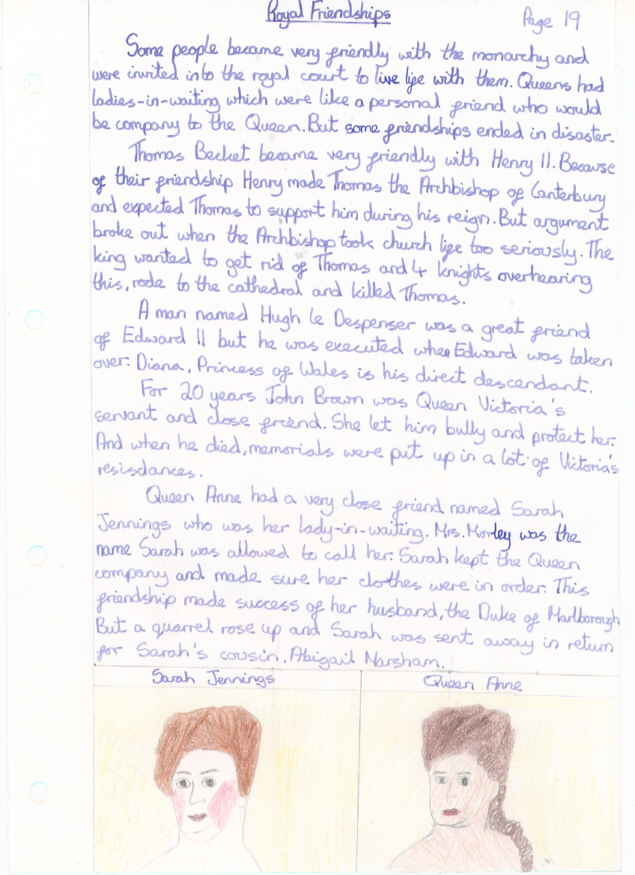 Royal Friendships
Page 19
Some people became very friendly with the monarchy and
were invited into the royal court to live life with them. Queens had
ladies-in-waiting which were like a personal friend who would
be company to the Queen. But some friendships ended in disaster.
Thomas Becket became very friendly with Henry II. Because
of their friendship Henry made Thomas the Archbishop of Canterbury
and expected Thomas to support him during his reign. But argument
broke out when the Archbishop took church life too seriously. The
king wanted to get rid of Thomas and 4 knights overhearing
this, rode to the cathedral and killed Thomas.
A man named Hugh le Despenser was a great friend
of Edward II but he was executed when Edward was taken
over. Diana, Princess of Wales is his direct descendant.
For 20 years John Brown was Queen Victoria's
servant and close friend. She let him bully and protect her.
And when he died, memorials were put up in a lot of Victoria's
resisdances.
Queen Anne had a very close friend named Sarah
Jennings who was her lady-in-waiting. Mrs. Morley was the
name Sarah was allowed to call her. Sarah kept the Queen
company and made sure her clothes were in order. This
friendship made success of her husband, the Duke of Marlborough
But a quarrel rose up and Sarah was sent away in return
for Sarah's cousin. Abigail Narsham.
Sarah Jennings
Queen Anne